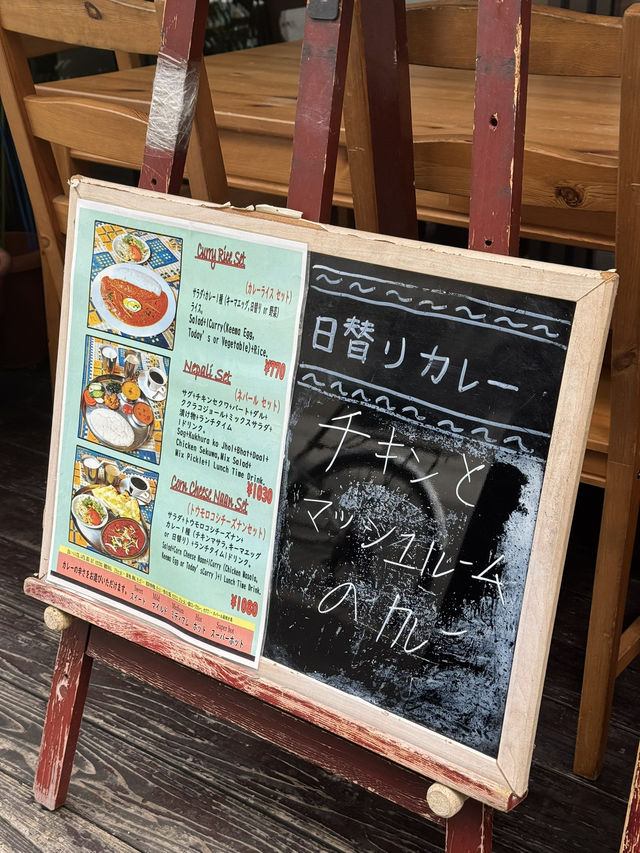 Curry Rice Set
(カレーライス セット)
サラダ+カレー1種(キーマエッグ,日替り or 野菜)
ライス,
Salad+1Curry(Keema Egg,
Today's or Vegetable)+Rice,
¥770
Nepali Set
(ネパール セット)
サグ+チキンセクワ+バート+ダル+
ククラコジョール+ミックスサラダ+
漬け物+ランチタイム
1ドリンク。
Sag+Kukhura ko Jhol+Bhat+Daal+
Chicken Sekuwa,Mix Salad+
Mix Pickle+1 Lunch Time Drink.
¥1030
Corn Cheese Naan Set
(トウモロコシチーズナンセット)
サラダ+トウモロコシチーズナン
カレー1種 (チキンマサラ,キーマエッグ
or 日替り) +ランチタイム1ドリンク。
Salad+Corn Cheese Naan+1Curry (Chicken Masala,
Keema Egg or Today's Curry)+1 Lunch Time Drink.
¥1080
カレーの辛さをお選びいただけます。
Sweet Mild Medium Hot Super hot
スイート マイルド ミディアム ホット スーパーホット
日替りカレー
チキンと
マッシュルーム
のカレー